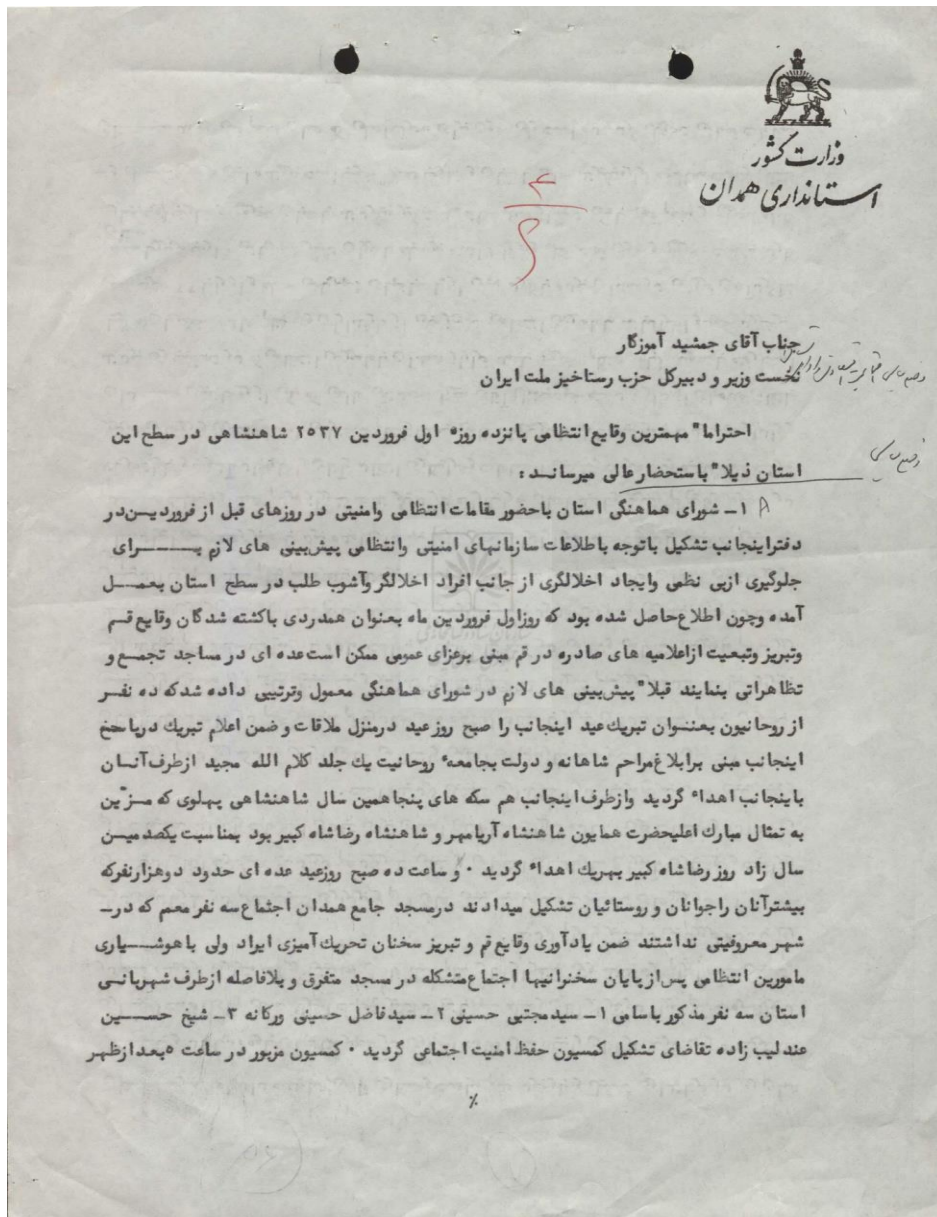 وزارت کشور
استانداری همدان
۴
جناب آقای جمشید آموزگار
نخست وزیر و دبیرکل حزب رستاخیز ملت ایران
احتراما" مهمترین وقایع انتظامی پانزده روزه اول فروردین ۲۵۳۷ شاهنشاهی در سطح این
استان ذیلا" باستحضار عالی میرسانـد :
۱ـ شورای هماهنگی استان باحضور مقامات انتظامی وامنیتی در روزهای قبل از فروردیـن در
دفتر اینجانب تشکیل با توجه باطلاعات سازمانهای امنیتی وانتظامی پیش‌بینی های لازم بـــرای
جلوگیری ازبی نظمی وایجاد اخلالگری از جانب افراد اخلالگر وآشوب طلب در سطح استان بعمـــل
آمده وچون اطلاع حاصل شده بود که روز اول فروردین ماه بعنوان همدردی با کشته شدگان وقایع قـم
وتبریز وتبعیت ازاعلامیه های صادره در قم مبنی برعزای عمومی ممکن است عده ای در مساجد تجمـع و
تظاهراتی بنمایند قبلا" پیش‌بینی های لازم در شورای هماهنگی معمول وترتیبی داده شدکه ده نفـر
از روحانیون بعنـوان تبریك عید اینجانب را صبح روز عید درمنزل ملاقات و ضمن اعلام تبریك درپاسخ
اینجانب مبنی برابلاغ مراحم شاهانه و دولت بجامعه روحانیت یك جلد کلام الله مجید ازطرف آنـسان
باینجانب اهداء گردید وازطرف اینجانب هم سکه های پنجاهمین سال شاهنشاهی پهلوی که مـزّین
به تمثال مبارك اعلیحضرت همایون شاهنشاه آریامهر و شاهنشاه رضا شاه کبیر بود بمناسبت یکصدمیـن
سال زاد روز رضا شاه کبیر بهریك اهداء گردید ۰ و ساعت ده صبح روزعید عده ای حدود دوهزارنفرکه
بیشترآنان راجوانان و روستائیان تشکیل میدادند درمسجد جامع همدان اجتماع سه نفر معمم که درـ
شهر معروفیتی نداشتند ضمن یادآوری وقایع قم و تبریز سخنان تحریك آمیزی ایراد ولی باهوشـــیاری
مامورین انتظامی پس‌ازپایان سخنرانیها اجتماع متشکله در مسجد متفرق و بلافاصله ازطرف شهربانـی
استان سه نفر مذکور باسامی ۱ـ سیدمجتبی حسینی ۲ـ سیدفاضل حسینی ورکانه ۳ـ شیخ حســـین
عندلیب زاده تقاضای تشکیل کمسیون حفظ امنیت اجتماعی گردید ۰ کمسیون مزبور در ساعت ۵بعدازظهر
٪